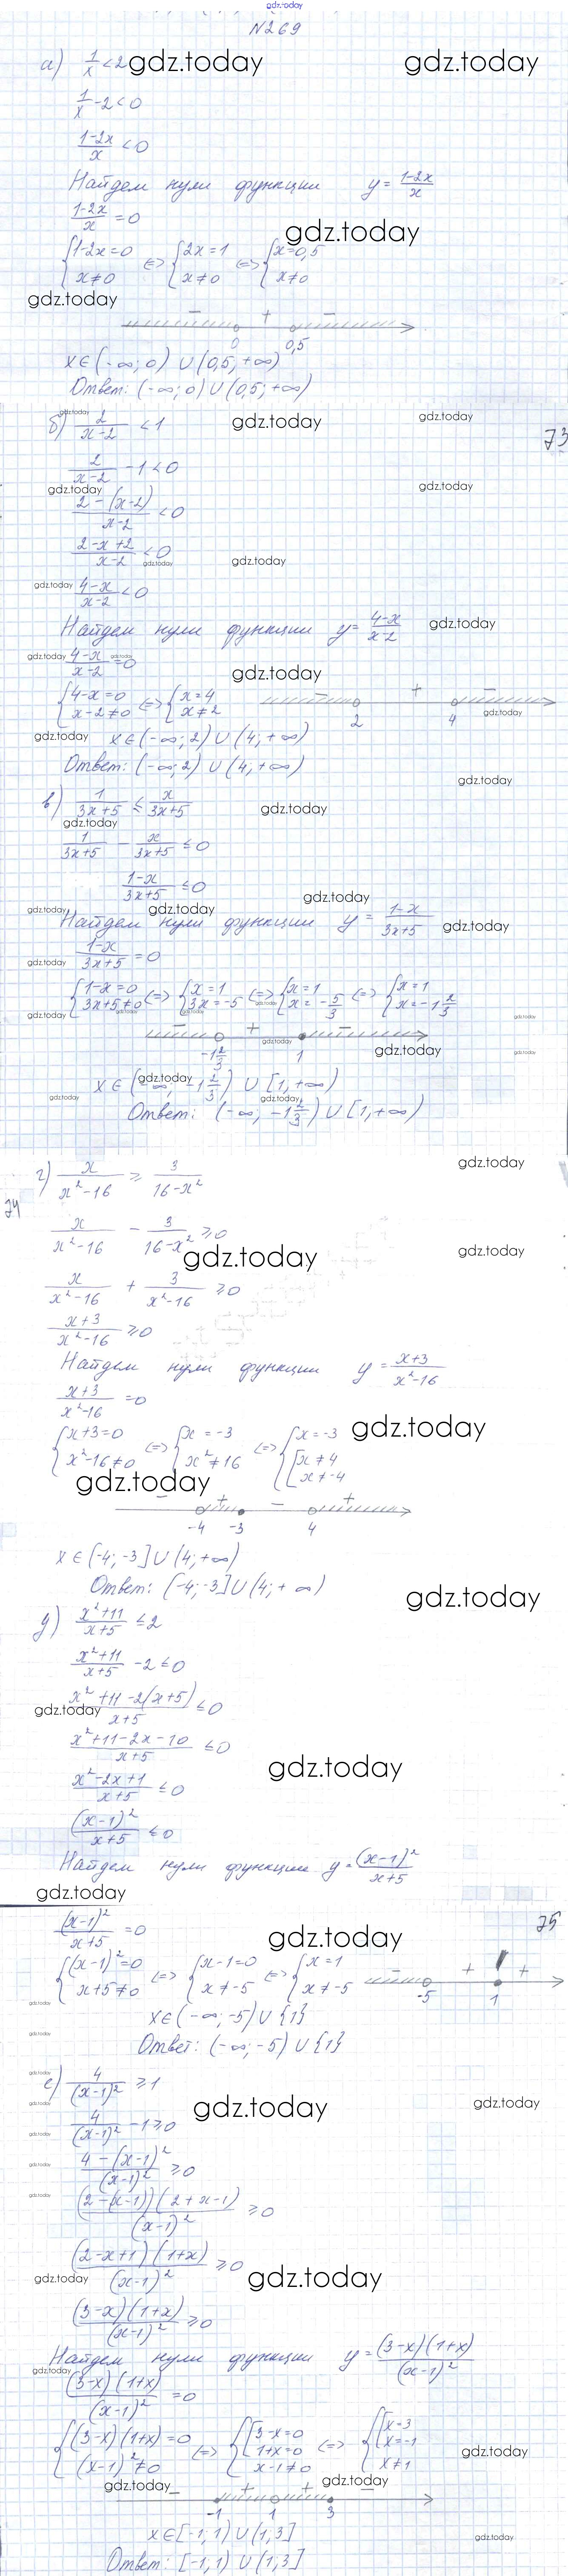 gdz.today
N269
а) 1/x < 2 gdz.today gdz.today
1/x - 2 < 0
(1-2x)/x < 0
Найдем нули функции y = (1-2x)/x
(1-2x)/x = 0
gdz.today
{1-2x=0 x≠0 <=> {2x=1 x≠0 <=> {x=0,5 x≠0
gdz.today
- + -
0 0,5
x∈(-∞; 0) ∪ (0,5; +∞)
Ответ: (-∞; 0) ∪ (0,5; +∞)
gdz.today gdz.today gdz.today
б) 2/(x-2) < 1
73
2/(x-2) - 1 < 0
gdz.today gdz.today
(2-(x-2))/(x-2) < 0
(2-x+2)/(x-2) < 0
gdz.today gdz.today
gdz.today (4-x)/(x-2) < 0
Найдем нули функции y = (4-x)/(x-2) gdz.today
gdz.today (4-x)/(x-2) = 0 gdz.today
gdz.today
{4-x=0 x-2≠0 <=> {x=4 x≠2
- + -
2 4 gdz.today
gdz.today x∈(-∞; 2) ∪ (4; +∞)
Ответ: (-∞; 2) ∪ (4; +∞)
gdz.today
в) 1/(3x+5) ≤ x/(3x+5) gdz.today
gdz.today
1/(3x+5) - x/(3x+5) ≤ 0
(1-x)/(3x+5) ≤ 0
gdz.today gdz.today gdz.today
Найдем нули функции y = (1-x)/(3x+5) gdz.today
gdz.today (1-x)/(3x+5) = 0
{1-x=0 3x+5≠0 <=> {x=1 3x=-5 <=> {x=1 x=-5/3 <=> {x=1 x=-1 2/3
gdz.today gdz.today gdz.today gdz.today
- + -
gdz.today
-1 2/3 1 gdz.today gdz.today
x∈(-∞; -1 2/3) ∪ [1; +∞) gdz.today
gdz.today gdz.today
Ответ: (-∞; -1 2/3) ∪ [1; +∞)
г) x/(x²-16) ≥ 3/(16-x²) gdz.today
74
x/(x²-16) - 3/(16-x²) ≥ 0
gdz.today gdz.today
x/(x²-16) + 3/(x²-16) ≥ 0
(x+3)/(x²-16) ≥ 0
Найдем нули функции y = (x+3)/(x²-16)
(x+3)/(x²-16) = 0
gdz.today
{x+3=0 x²-16≠0 <=> {x=-3 x²≠16 <=> {x=-3 [x≠4 x≠-4
gdz.today
- + - +
-4 -3 4
x∈(-4; -3] ∪ (4; +∞)
Ответ: (-4; -3] ∪ (4; +∞)
gdz.today
д) (x²+11)/(x+5) ≤ 2
(x²+11)/(x+5) - 2 ≤ 0
(x²+11-2(x+5))/(x+5) ≤ 0
gdz.today
(x²+11-2x-10)/(x+5) ≤ 0
gdz.today
(x²-2x+1)/(x+5) ≤ 0
(x-1)²/(x+5) ≤ 0
Найдем нули функции y = (x-1)²/(x+5)
gdz.today
(x-1)²/(x+5) = 0 gdz.today 75
{(x-1)²=0 x+5≠0 <=> {x-1=0 x≠-5 <=> {x=1 x≠-5
- + +
-5 1
gdz.today
x∈(-∞; -5) ∪ {1}
gdz.today
Ответ: (-∞; -5) ∪ {1}
gdz.today
е) 4/(x-1)² ≥ 1
gdz.today gdz.today gdz.today
4/(x-1)² - 1 ≥ 0
gdz.today
(4-(x-1)²)/(x-1)² ≥ 0
gdz.today
((2-(x-1))(2+x-1))/(x-1)² ≥ 0
gdz.today
((2-x+1)(1+x))/(x-1)² ≥ 0
gdz.today gdz.today
((3-x)(1+x))/(x-1)² ≥ 0
Найдем нули функции y = ((3-x)(1+x))/(x-1)²
gdz.today
((3-x)(1+x))/(x-1)² = 0
{(3-x)(1+x)=0 (x-1)²≠0 <=> {[3-x=0 1+x=0 x-1≠0 <=> {[x=3 x=-1 x≠1
gdz.today
gdz.today gdz.today
- + + -
-1 1 3
x∈[-1; 1) ∪ (1; 3]
gdz.today
Ответ: [-1; 1) ∪ (1; 3]